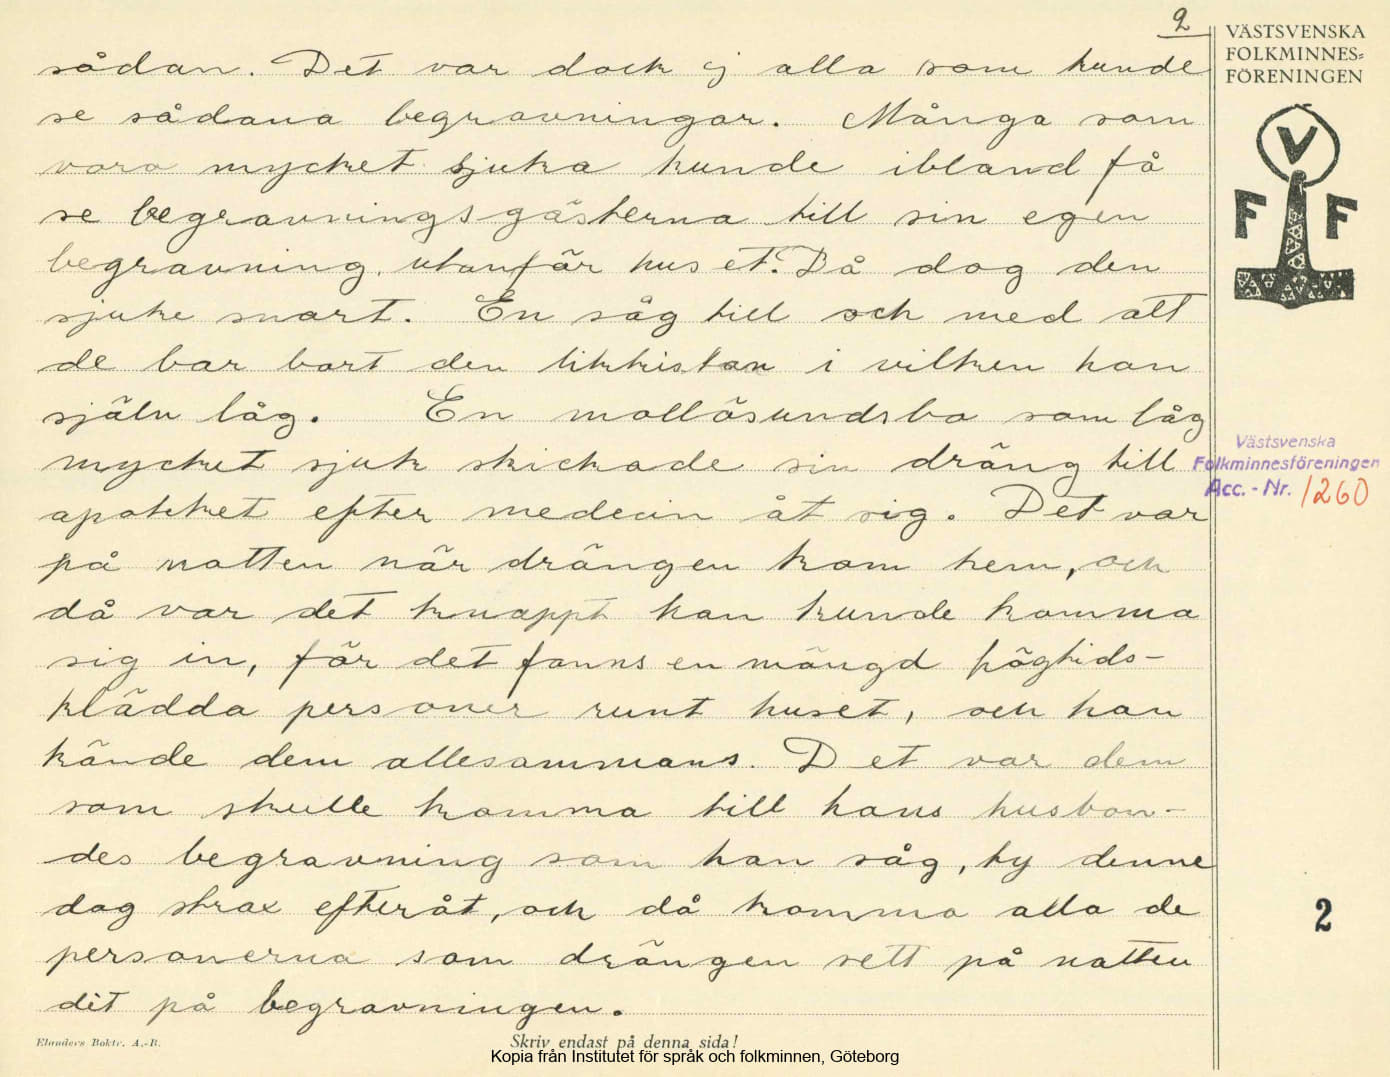 2
VÄSTSVENSKA
FOLKMINNES-
FÖRENINGEN
V
F F
sådan. Det var dock ej alla som kunde
se sådana begravningar. Många som
vara mycket sjuka kunde ibland få
se begravningsgästerna till sin egen
begravning utanför huset. Då dog den
sjuke snart. En såg till och med att
de bar bort den likkistan i vilken han
själv låg. En mollösundsbo som låg
mycket sjuk skickade sin dräng till
apotket efter medecin åt sig. Det var
på natten när drängen kom hem, och
då var det knappt han kunde komma
sig in, för det fanns en mängd högtids-
klädda personer runt huset, och han
kände dem allesammans. Det var dem
som skulle komma till hans husbon-
des begravning som han såg, ty denne
dog strax efteråt, och då komma alla de
personerna som drängen sett på natten
dit på begravningen.
Västsvenska
Folkminnesföreningen
Acc.-Nr. 1260
2
Elanders Boktr. A.-B.
Skriv endast på denna sida!
Kopia från Institutet för språk och folkminnen, Göteborg